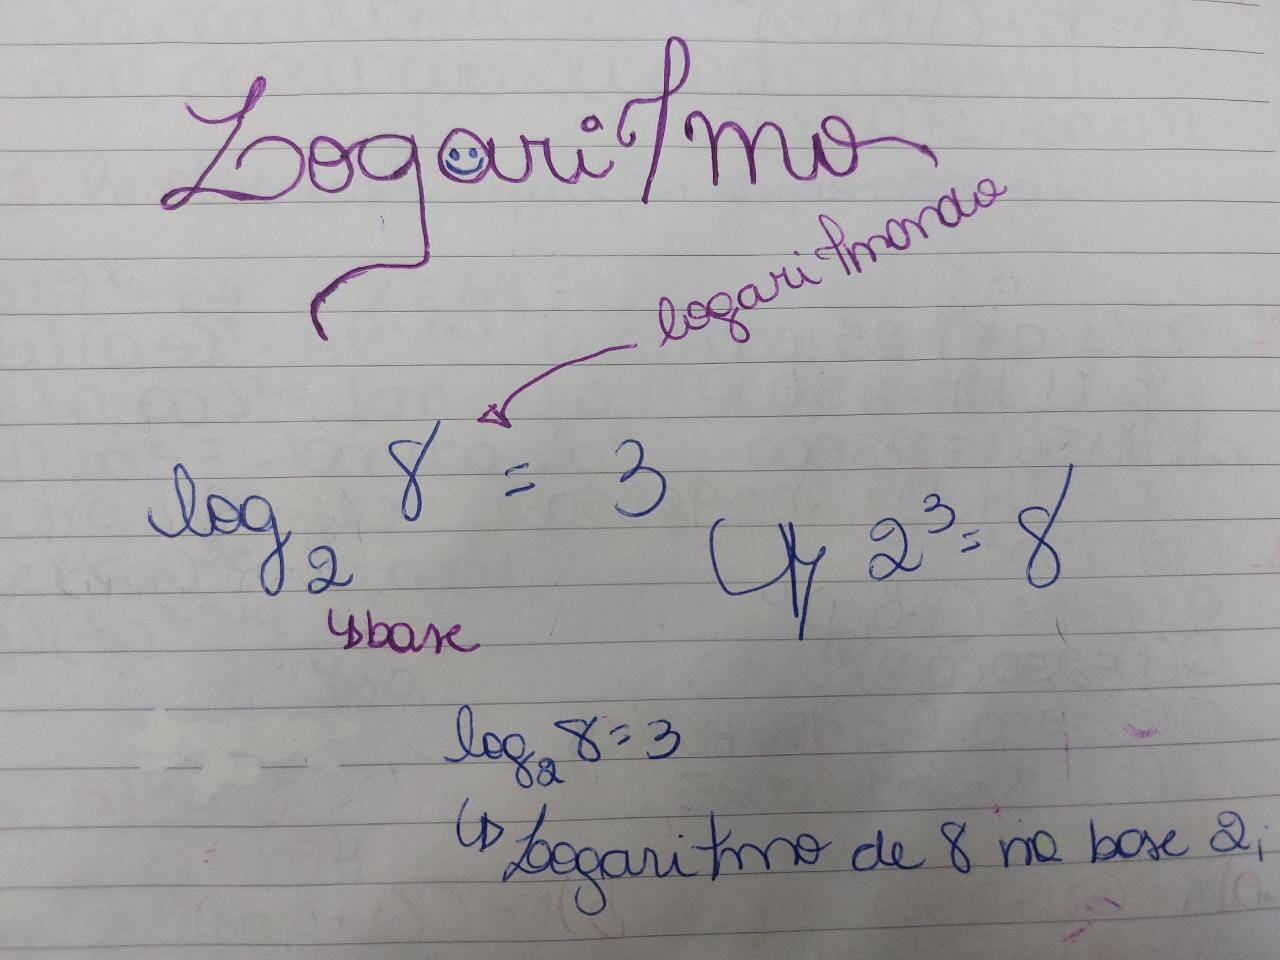 Logaritmo
logaritmando
log₂ 8 = 3
↳ 2³ = 8
↳ base
log₂ 8 = 3
↳ Logaritmo de 8 na base 2;